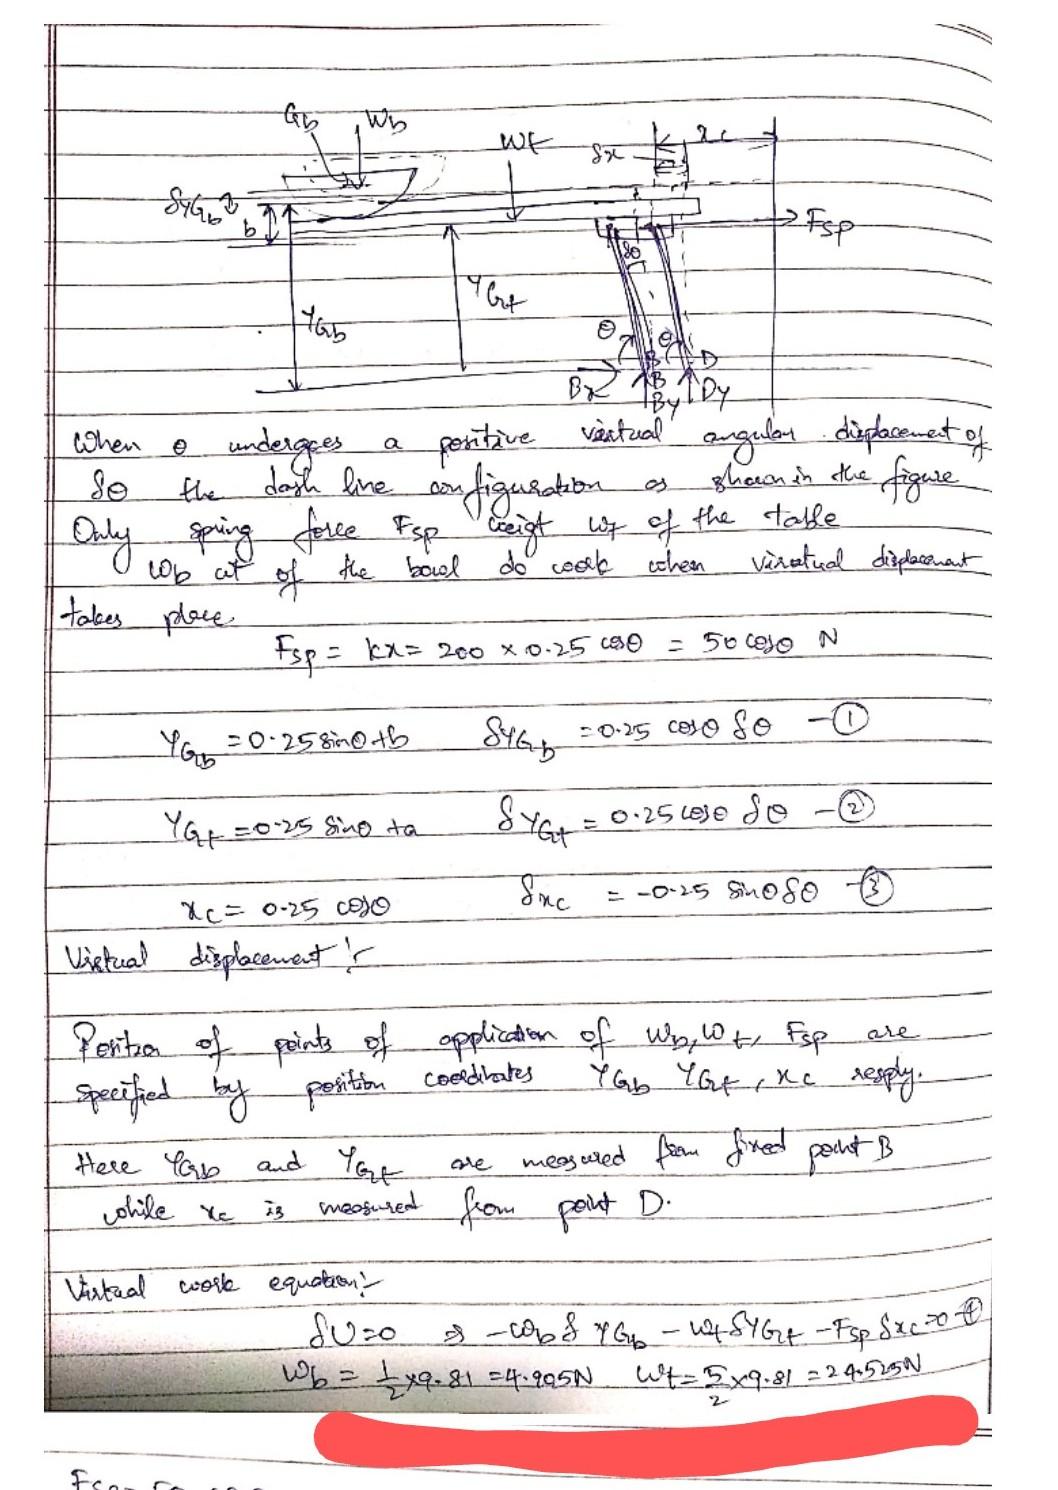 Gb Wb
Wt
δx xc
δyGb
b
Fsp
δθ
YGt
YGb
θ θ
B D
Bx B
By Dy
When θ undergoes a positive virtual angular displacement of
δθ the dash line configuration as shown in the figure
Only spring force Fsp weigt wt of the table
Wb wt of the bowl do work when virtual displacement
takes place.
Fsp = kx = 200 × 0.25 cosθ = 50 cosθ N
YGb = 0.25 sinθ + b δYGb = 0.25 cosθ δθ - ①
YGt = 0.25 sinθ + a δYGt = 0.25 cosθ δθ - ②
xc = 0.25 cosθ δxc = -0.25 sinθ δθ - ③
Virtual displacement :-
Position of points of application of Wb, Wt, Fsp are
specified by position coordinates YGb YGt, xc resply.
Here YGb and YGt are measured from fixed point B
while xc is measured from point D.
Virtual work equation :-
δU=0 ⇒ -Wb δ YGb - Wt δYGt - Fsp δxc = 0 - ④
Wb = 1/2 × 9.81 = 4.905N Wt = 5/2 × 9.81 = 24.525N